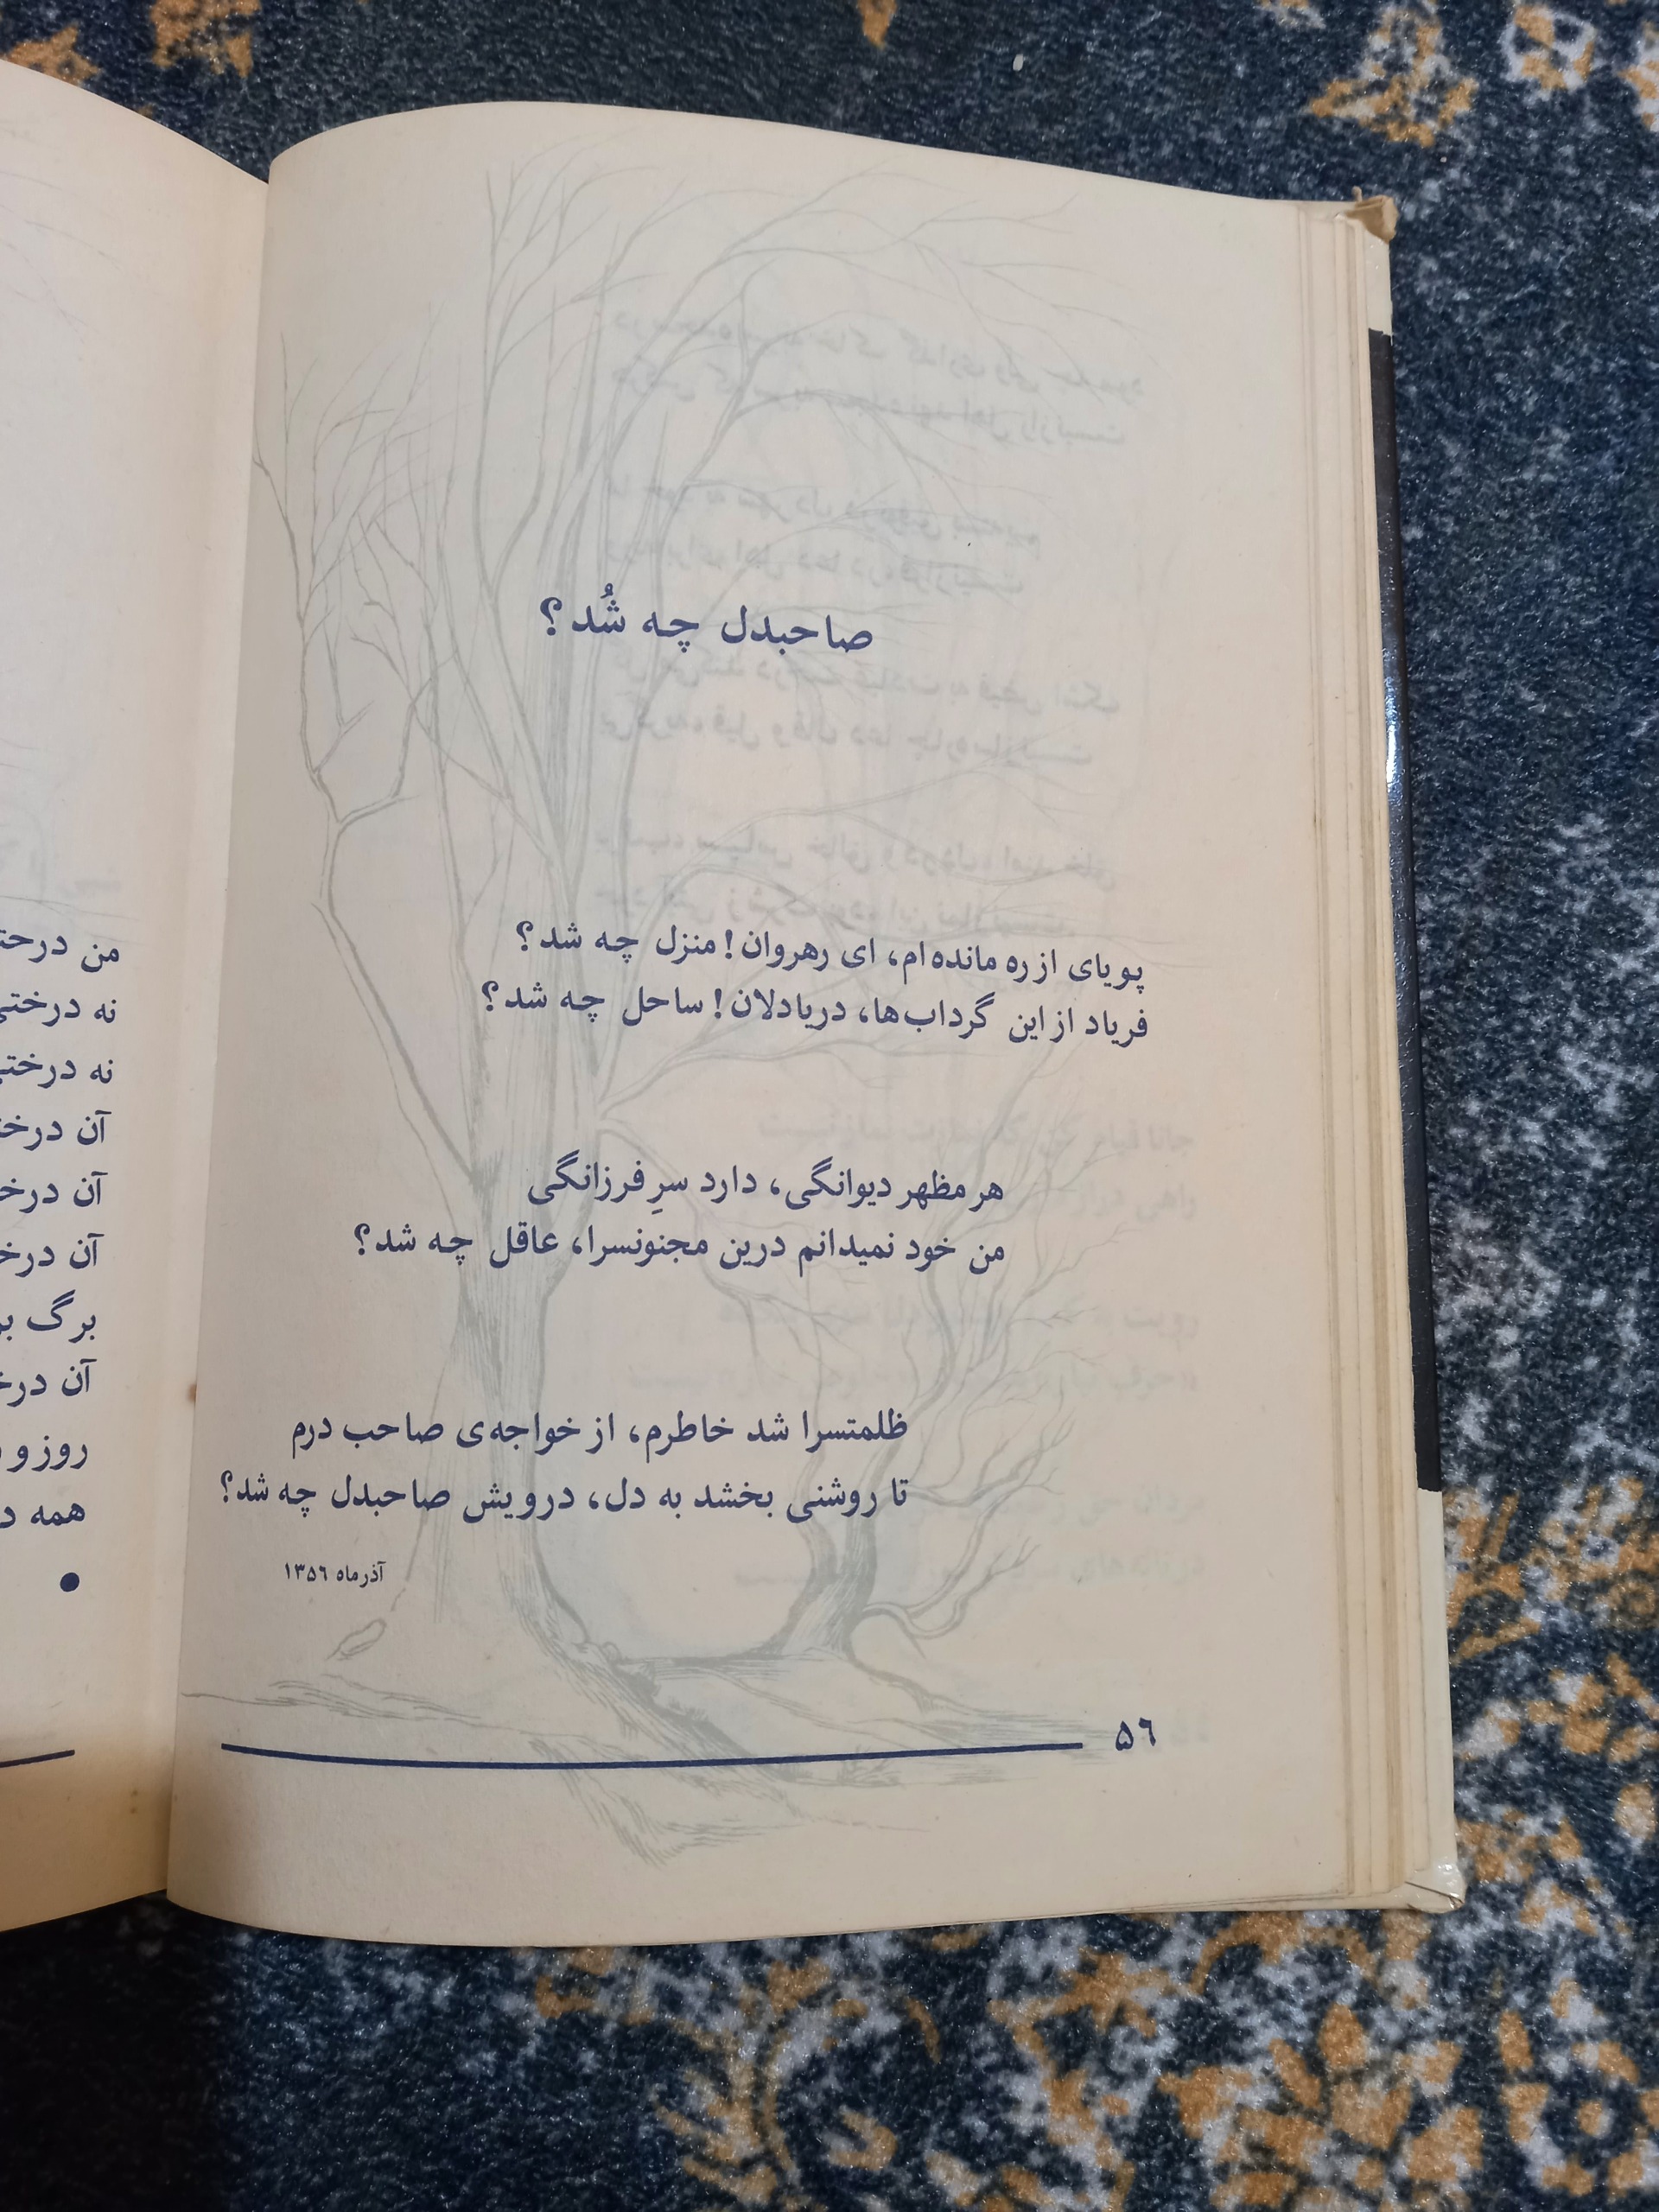 صاحبدل چه شُد؟
پویای از ره مانده‌ام، ای رهروان! منزل چه شد؟
فریاد از این گرداب‌ها، دریادلان! ساحل چه شد؟
هر مظهر دیوانگی، دارد سرِ فرزانگی
من خود نمیدانم درین مجنونسرا، عاقل چه شد؟
ظلمتسرا شد خاطرم، از خواجه‌ی صاحب درم
تا روشنی بخشد به دل، درویش صاحبدل چه شد؟
آذرماه ۱۳۵۶
۵۶
من
نه
نه
آن
آن
آن
برگ
آن
روز و
همه